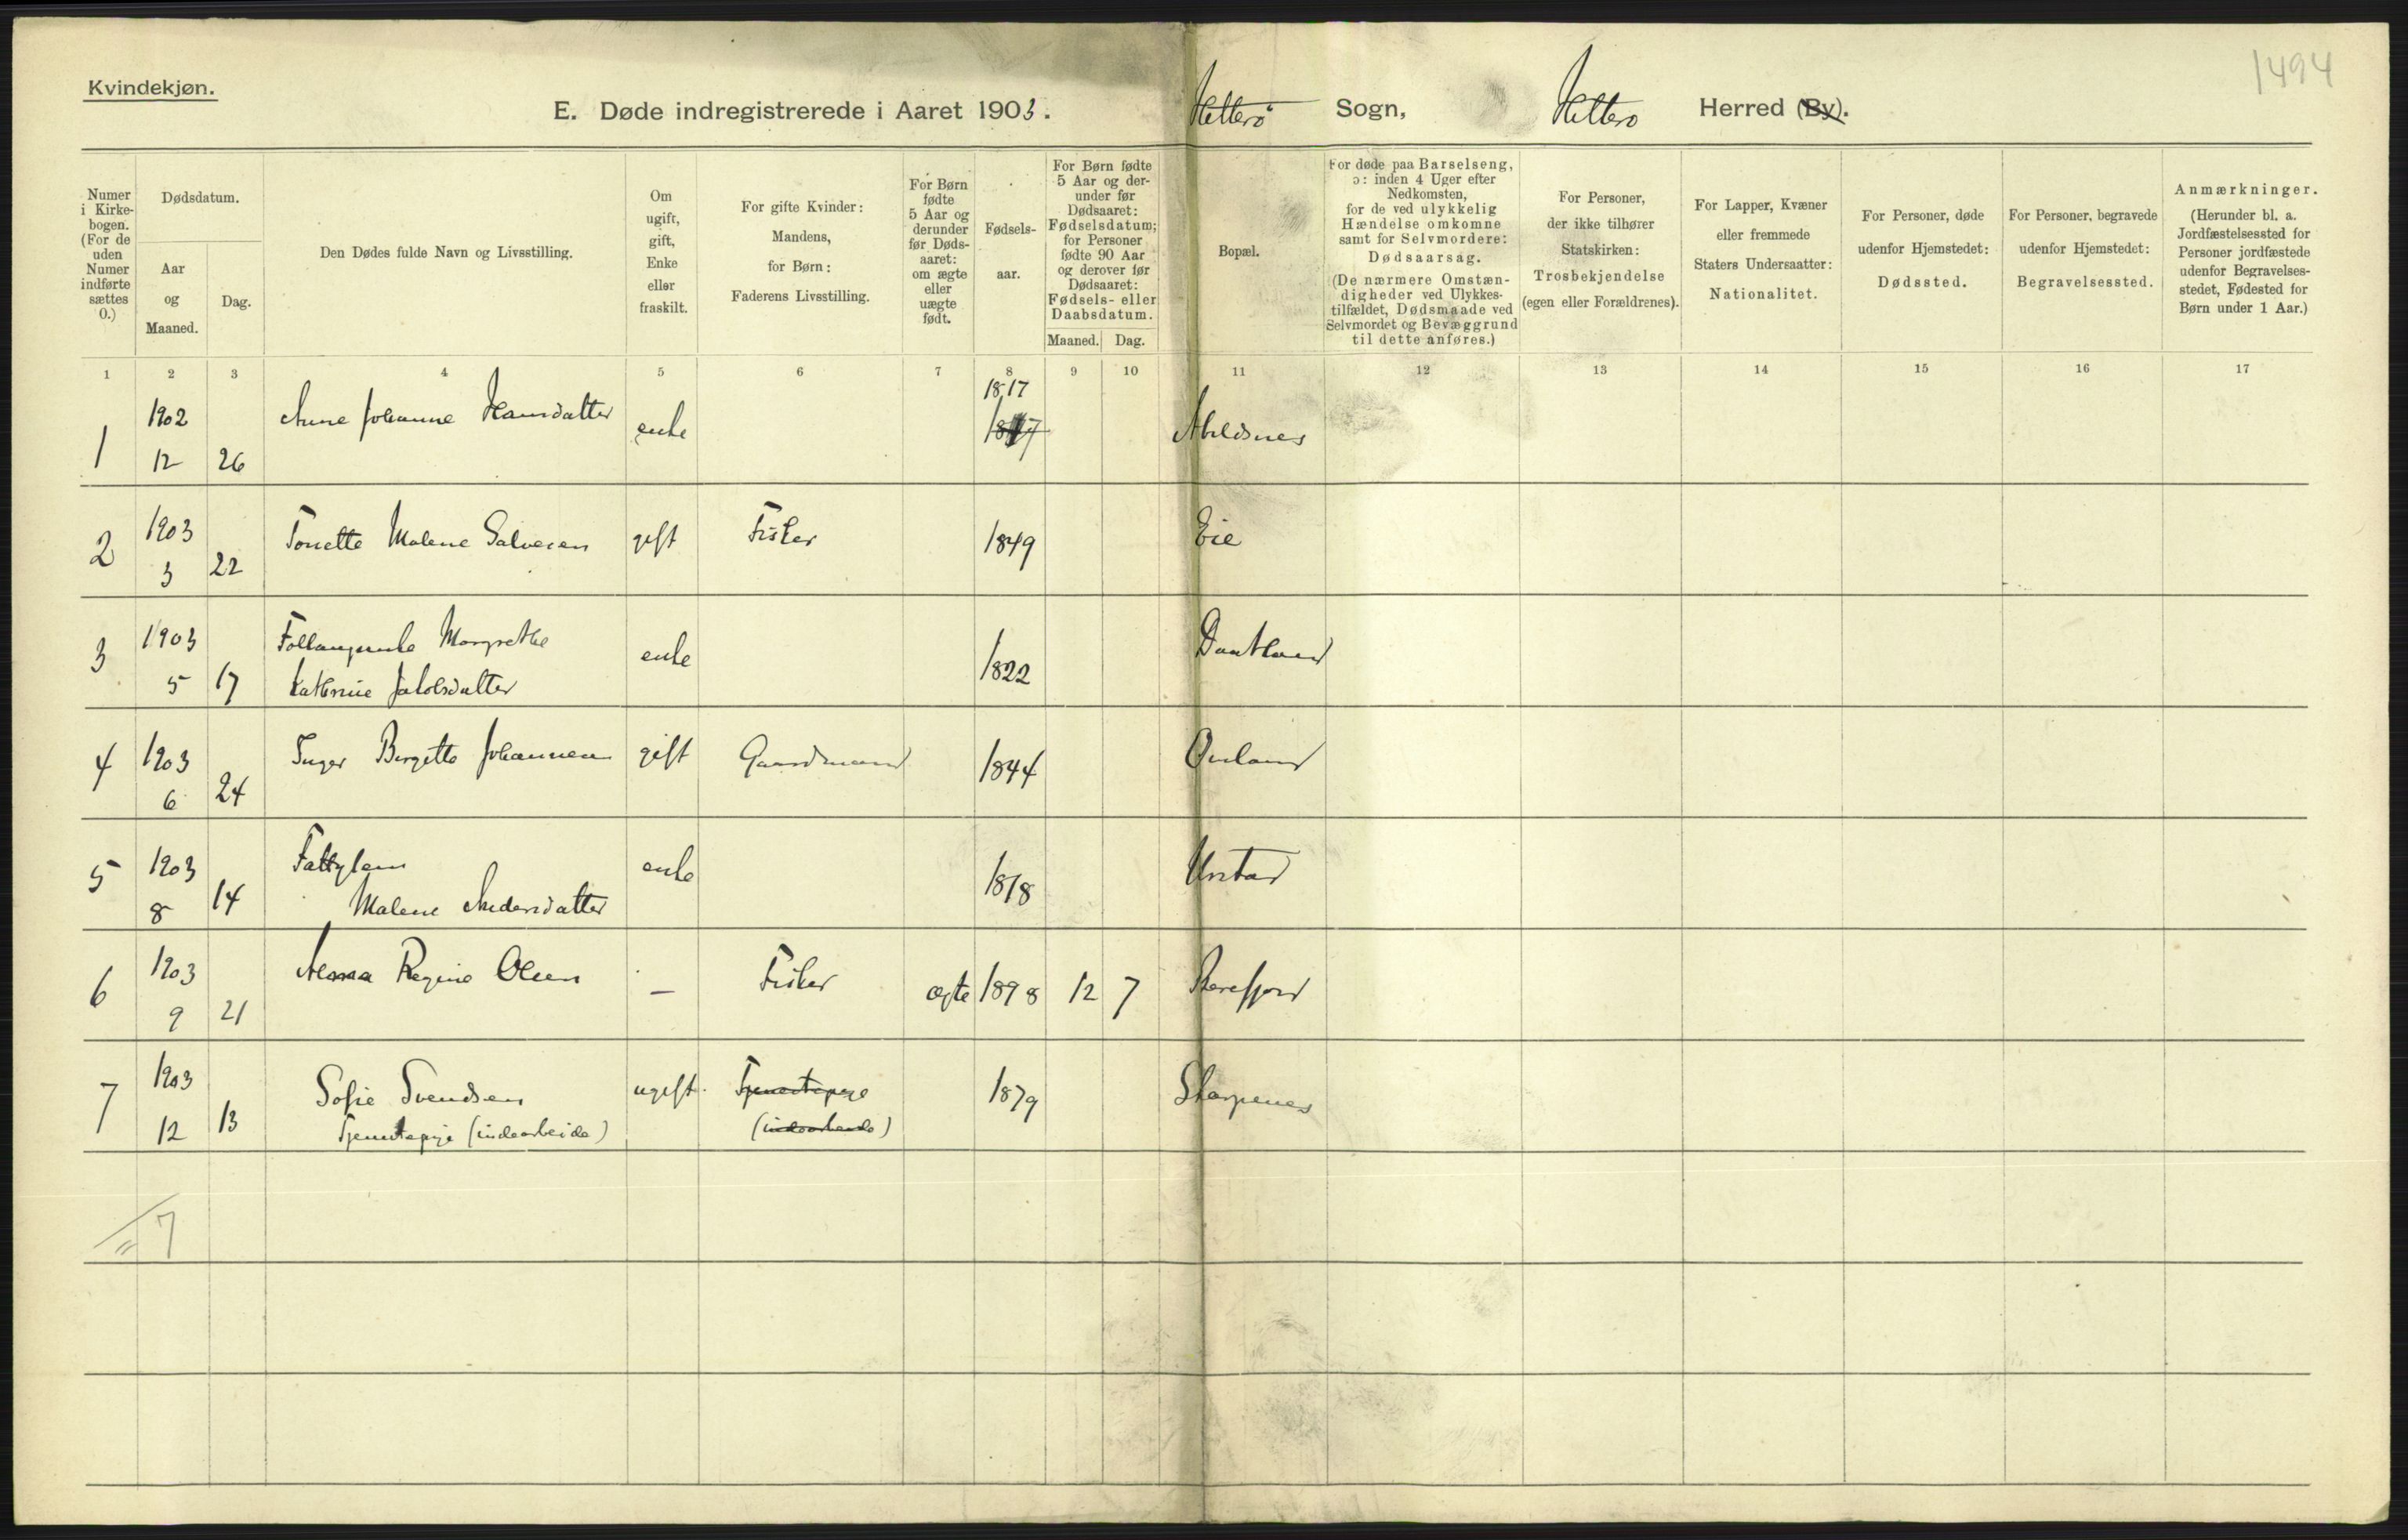 1494
Kvindekjøn.
E. Døde indregistrerede i Aaret 1903. Hitterø Sogn, Hitterø Herred (By).
Numer i Kirke- bogen. (For de uden Numer indførte sættes 0.)
Dødsdatum.
Aar og Maaned.
Dag.
Den Dødes fulde Navn og Livsstilling.
Om ugift, gift, Enke eller fraskilt.
For gifte Kvinder: Mandens, for Børn: Faderens Livsstilling.
For Børn fødte 5 Aar og derunder før Døds- aaret: om ægte eller uægte født.
Fødsels- aar.
For Børn fødte 5 Aar og der- under før Dødsaaret: Fødselsdatum; for Personer fødte 90 Aar og derover før Dødsaaret: Fødsels- eller Daabsdatum.
Maaned. Dag.
Bopæl.
For døde paa Barselseng, ɔ: inden 4 Uger efter Nedkomsten, for de ved ulykkelig Hændelse omkomne samt for Selvmordere: Dødsaarsag. (De nærmere Omstæn- digheder ved Ulykkes- tilfældet, Dødsmaade ved Selvmordet og Bevæggrund til dette anføres.)
For Personer, der ikke tilhører Statskirken: Trosbekjendelse (egen eller Forældrenes).
For Lapper, Kvæner eller fremmede Staters Undersaatter: Nationalitet.
For Personer, døde udenfor Hjemstedet: Dødssted.
For Personer, begravede udenfor Hjemstedet: Begravelsessted.
Anmærkninger. (Herunder bl. a. Jordfæstelsessted for Personer jordfæstede udenfor Begravelses- stedet, Fødested for Børn under 1 Aar.)
1 2 3 4 5 6 7 8 9 10 11 12 13 14 15 16 17
1 1902 12 26 Anne Johanne Hansdatter enke 1817 Abelsnes
2 1903 3 22 Tonette Malene Salvesen gift Fisker 1849 Eie
3 1903 5 17 Margrethe
Kathrine Jakobsdatter enke 1822
4 1903 6 24 Inger Birgitte Johannesen gift Gaardmand 1844
5 1903 8 14 Fattiglem
Malene Andersdatter enke 1818 Urstad
6 1903 9 21 Alma Regine Olsen — Fisker ægte 1898 12 7 Rørefjord
7 1903 12 13 Sofie Svendsen ugift. Tjenestepige 1879 Skarpenes
Tjenestepige (indearbeide) (indearbeide)
7